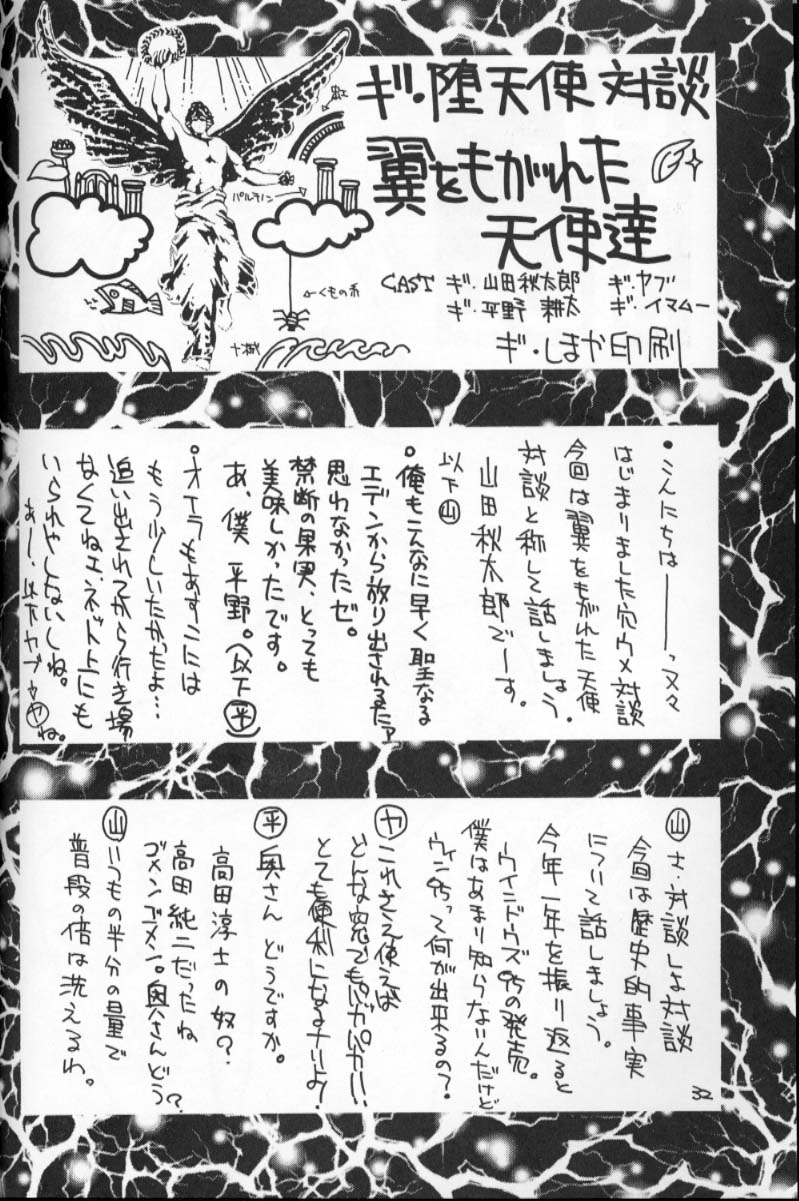 ギ・堕天使 対談
翼をもがれた
天使達
CAST ギ・山田秋太郎 ギ・ヤブ
ギ・平野 耕太 ギ・イマムー
ギ・しまや印刷
虹
パルテノン
←くもの糸
・こんにちは――っ又々
はじまりました穴ウメ対談
今回は翼をもがれた天使
対談と称して話しましょう。
山田秋太郎でーす。
以下山
・俺もこんなに早く聖なる
エデンから放り出されるたァ
思わなかったゼ。
禁断の果実、とっても
美味しかったです。
あ、僕 平野。(以下平)
・オイラもあすこには
もう少しいたかったよ…
追い出されてから行き場
なくてねェ、ネドト上にも
いられやしないしね。
あー、以下ヤブ→ヤね。
山 さ・対談しよ対談
今回は歴史的事実
について話しましょう。
今年一年を振り返ると
ウィンドウズ95の発売。
僕はあまり知らないんだけど
ウィン95って何が出来るの？
ヤ これさえ使えば
どんな窓でもパカパカ!!
とても便利になるナリよ!
平 奥さん どうですか。
高田淳士の奴？
高田純二だったね
ゴメンゴメン。奥さんどう？
山 いつもの半分の量で
普段の倍は洗えるわ。
32